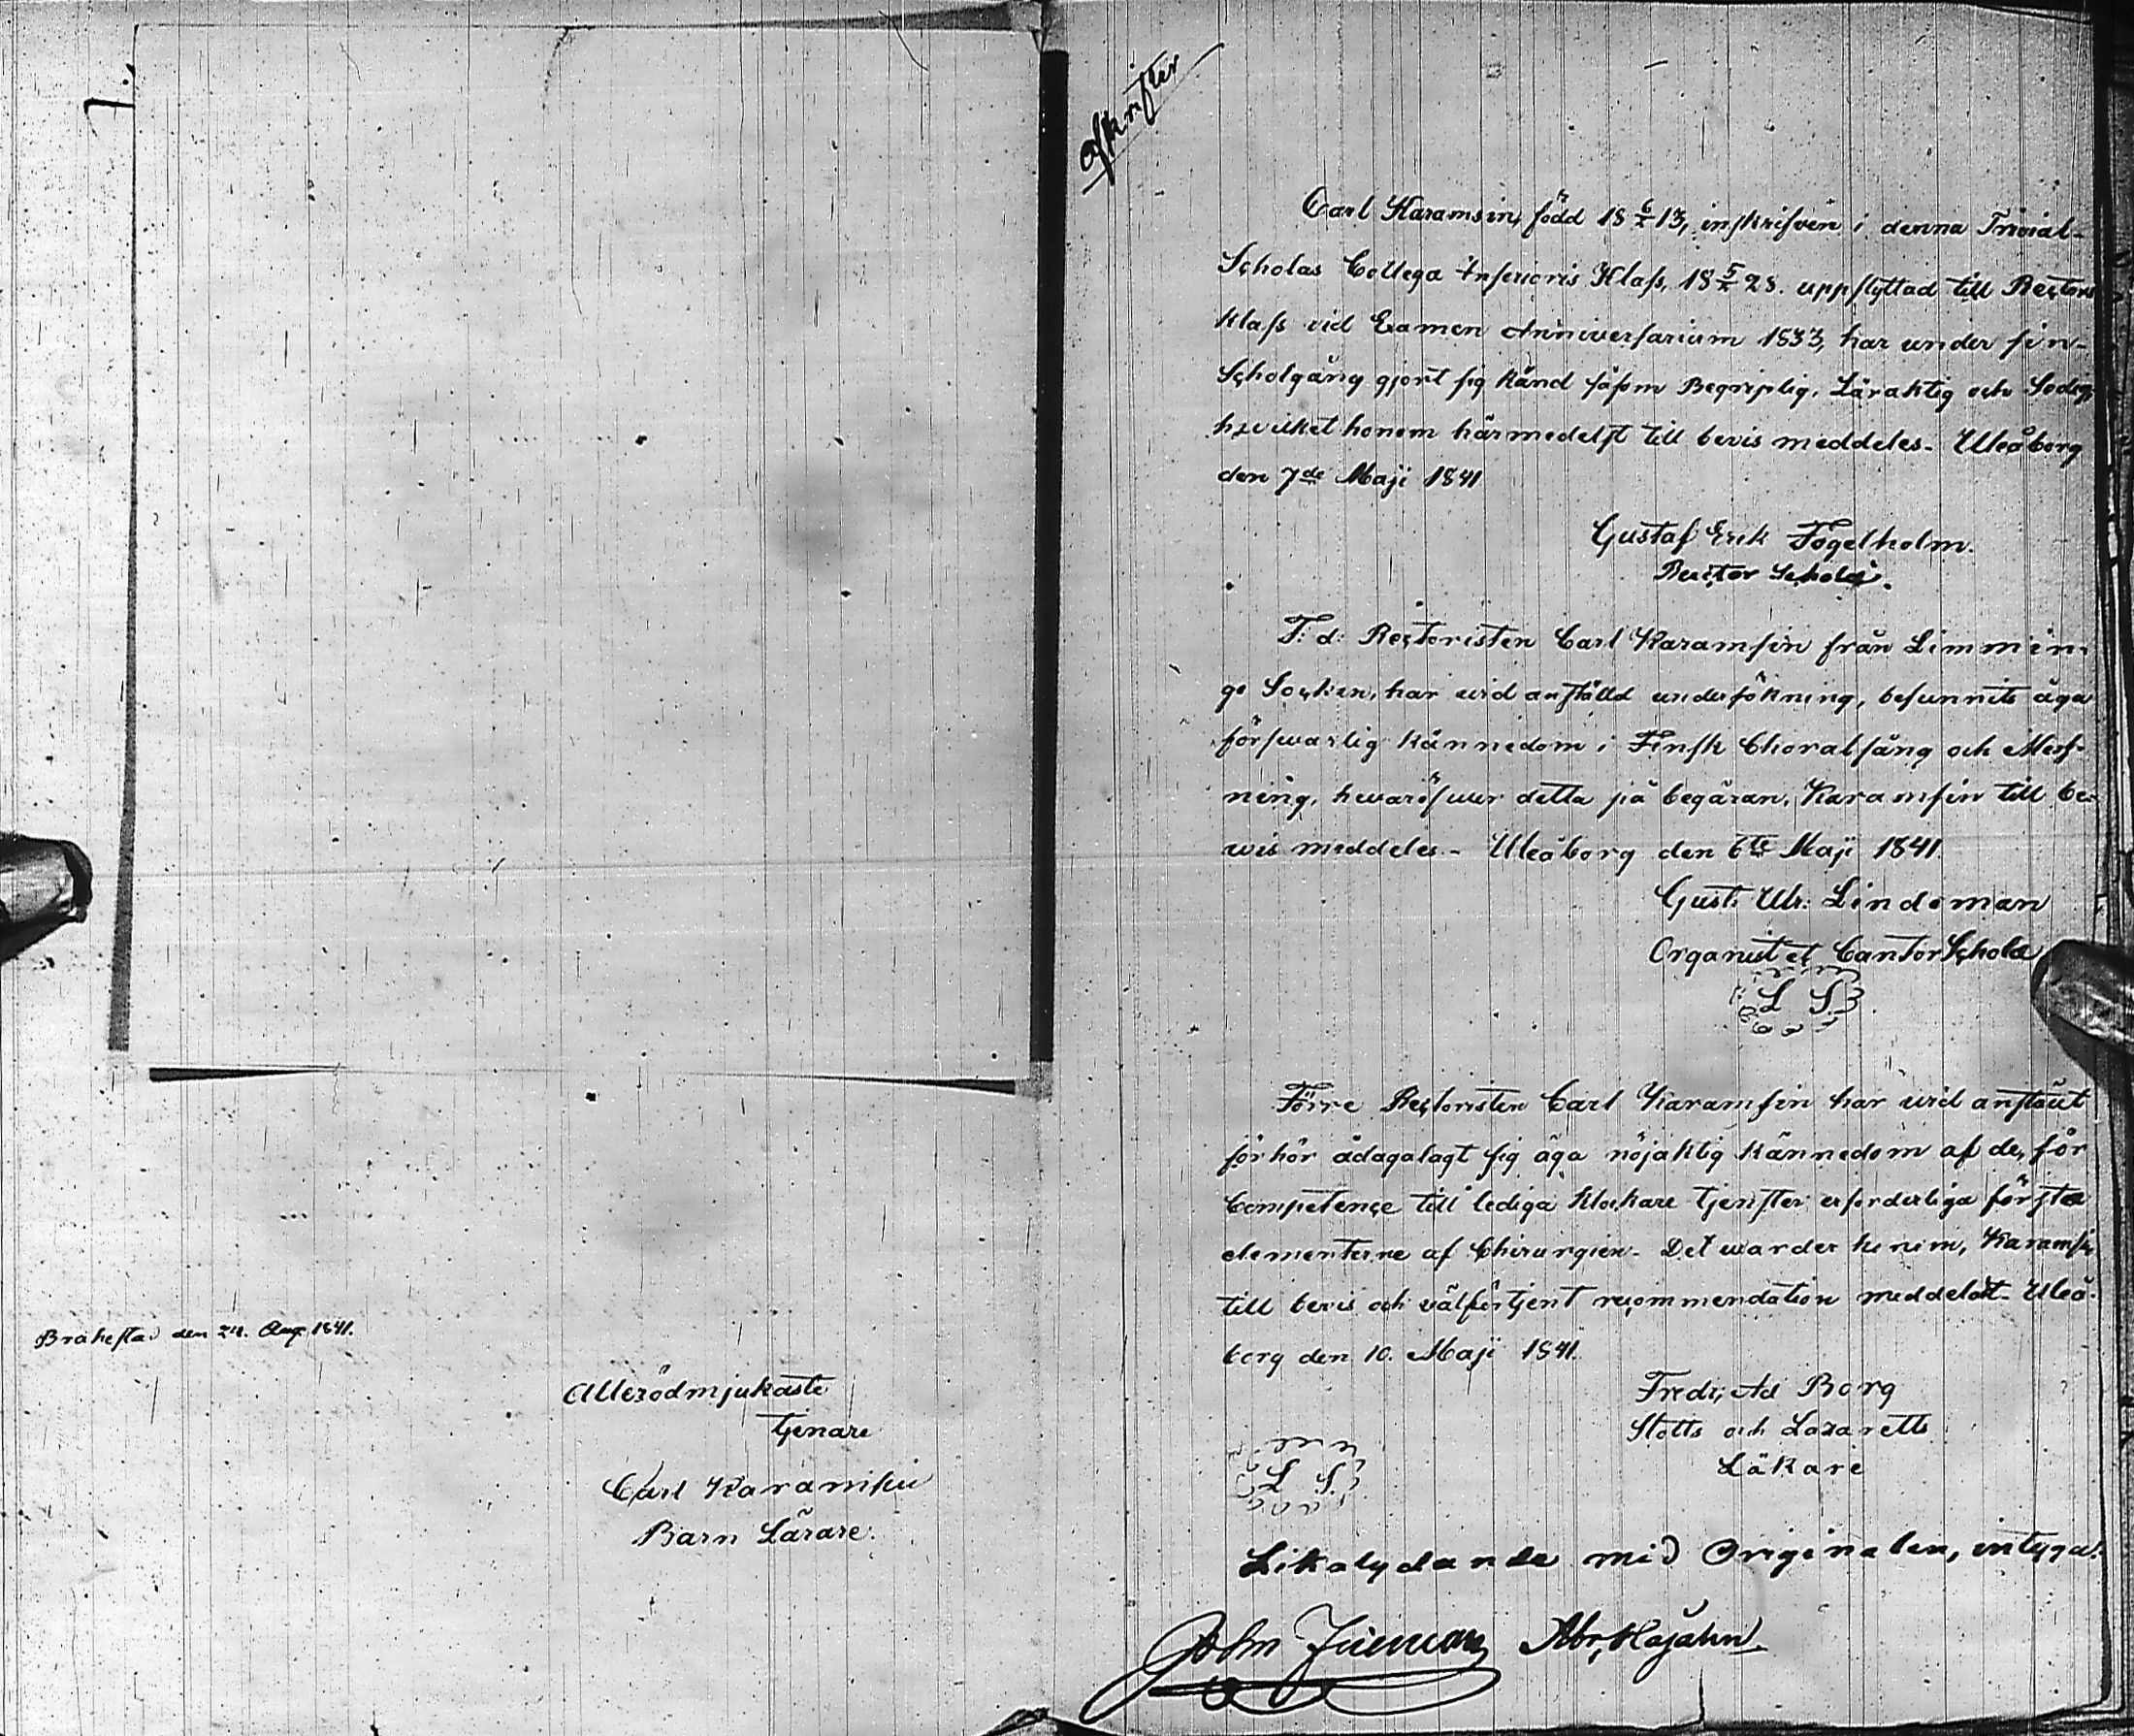 Brahestad den 24. Aug. 1841.
Allerödmjukaste
tjenare
Carl Karamsin
Barn Lärare.
Afskrifter
Carl Karamsin, född 18 6/2 13, inskrifven i denna Trivial-
Scholas Collega Inferioris Klass, 18 5/2 28. uppflyttad till Rectors
klass vid Examen Anniversarium 1833, har under sin
Scholgång gjort sig känd såsom Begriplig, Läraktig och Sedig,
hvilket honom härmedelst till bevis meddeles. Uleåborg
den 7de Maji 1841
Gustaf Erik Fogelholm.
Rector Scholæ.
F: d: Rectoristen Carl Karamsin från Limmin-
go Socken, har wid anställd undersökning, befunnits äga
förswarlig kännedom i Finsk Choralsång och Mess-
ning, hwaröfwer detta på begäran, Karamsin till be-
wis meddeles. Uleåborg den 6te Maji 1841.
Gust. Ulr. Lindeman
Organist et Cantor Scholæ
L S.
Förre Rectoristen Carl Karamsin har wid anstäldt
förhör ådagalagt sig äga nöjaktig kännedom af de, för
Competence till lediga Klockare tjenster erforderliga första
elementerne af Chirurgien. Det warder honom, Karamsin
till bevis och välförtjent recommendation meddelat. Uleå-
borg den 10. Maji 1841.
Fredr. Ad Borg
Slotts och Lazaretts
Läkare
L S.
Likalydande med Originalen, intyga:
John Abr. Hajahn